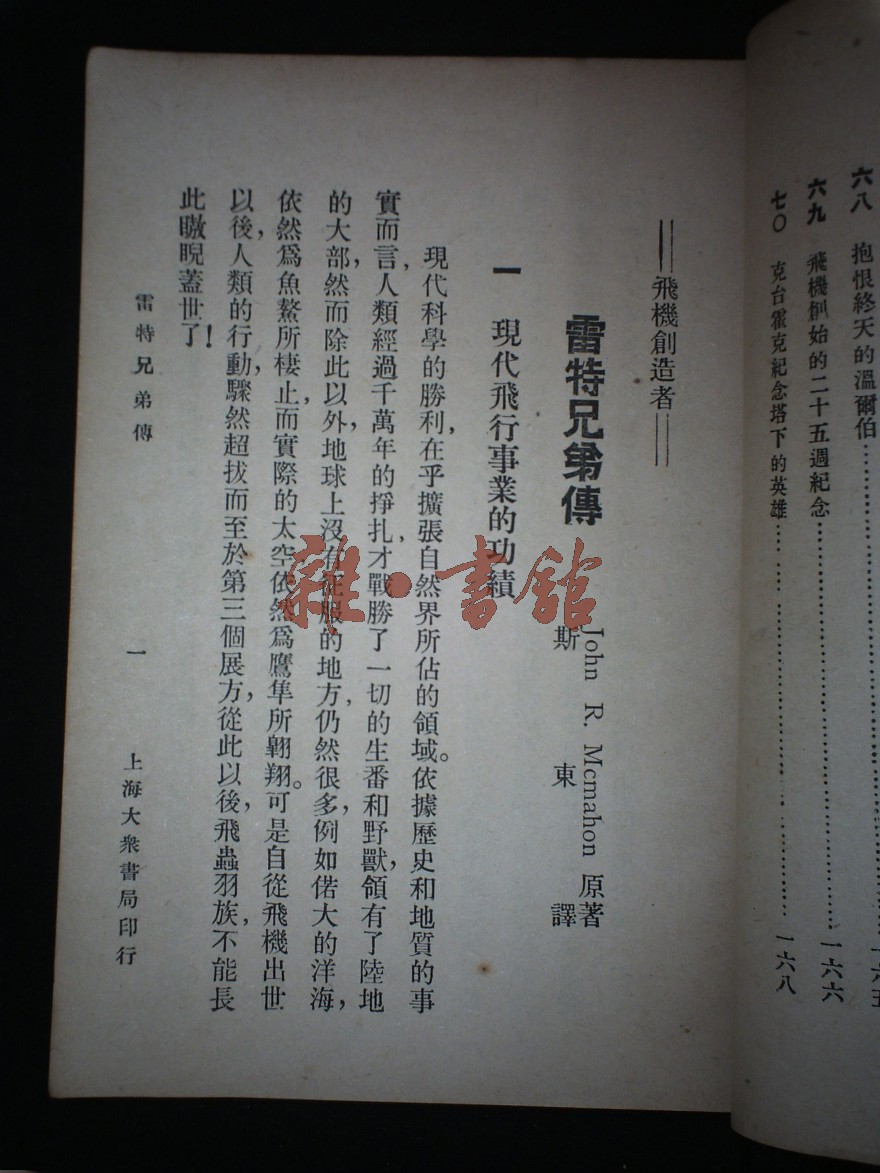 六八 抱恨終天的溫爾伯……一六五
六九 飛機創始的二十五週紀念……一六六
七〇 克台霍克紀念塔下的英雄……一六八
——飛機創造者——
雷特兄弟傳
John R. Mcmahon 原著
斯東 譯
一 現代飛行事業的功績
現代科學的勝利,在乎擴張自然界所佔的領域。依據歷史和地質的事
實而言,人類經過千萬年的掙扎,才戰勝了一切的生番和野獸,領有了陸地
的大部,然而除此以外,地球上沒有征服的地方,仍然很多,例如偌大的洋海,
依然爲魚鰲所棲止,而實際的太空,依然爲鷹隼所翺翔。可是自從飛機出世
以後,人類的行動,驟然超拔而至於第三個展方,從此以後,飛蟲羽族,不能長
此瞰睨蓋世了!
雷特兄弟傳
一
上海大衆書局印行
雜·書館